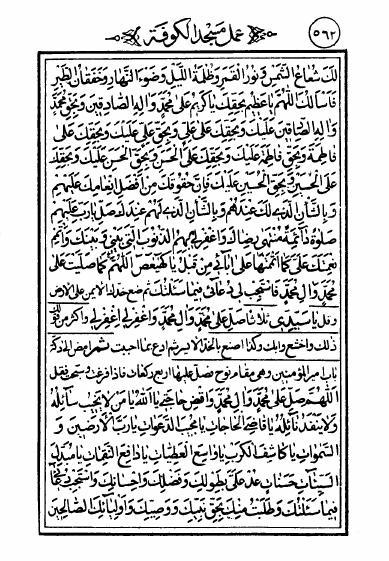 عمل مسجد الكوفة
٥٦٢
لك شعاع الشمس ونور القمر وظلمة الليل وضوء النهار وخفقان الطير
فاسالك اللهم يا عظيم بحقك يا كريم على محمد واله الصادقين وبحق محمد
واله الصادقين عليك وبحقك على علي وبحق علي عليك وبحقك على
فاطمة وبحق فاطمة عليك وبحقك على الحسن وبحق الحسن عليك وبحقك
على الحسين وبحق الحسين عليك فان حقوقك من افضل انعامك عليهم
وبالشان الذي لك عندهم وبالشان الذي لهم عندك صل يا رب عليهم
صلوة دائمة منتهى رضاك واغفر لي بهم الذنوب التي بيني وبينك واتمم
نعمتك علي كما اتممتها على ابائي من قبل يا كهيعص اللهم كما صليت على
محمد وال محمد فاستجب لي دعائي فيما سالتك ثم ضع خدك الايمن على الارض
وقل يا سيدي ثلاثا صل على محمد وال محمد واغفر لي اغفر لي واكثر من قول
ذلك واخشع وابك وكذا اصنع بالخد الايسر ثم ادع بما احببت
باب امير المؤمنين وهي مقام نوح صل عليها اربع ركعات فاذا فرغت وسبحت فقل
اللهم صل على محمد وال محمد واقض حاجتي يا الله يا من لا يخيب سائله
ولا ينفد نائله يا قاضي الحاجات يا مجيب الدعوات يا رب الارضين و
السموات يا كاشف الكرب يا واسع العطيات يا دافع النقمات يا مبدل
السيئات حسنات عد علي بطولك وفضلك واحسانك واستجب دعائي
فيما سئلتك وطلبت منك بحق نبيك ووصيك واوليائك الصالحين